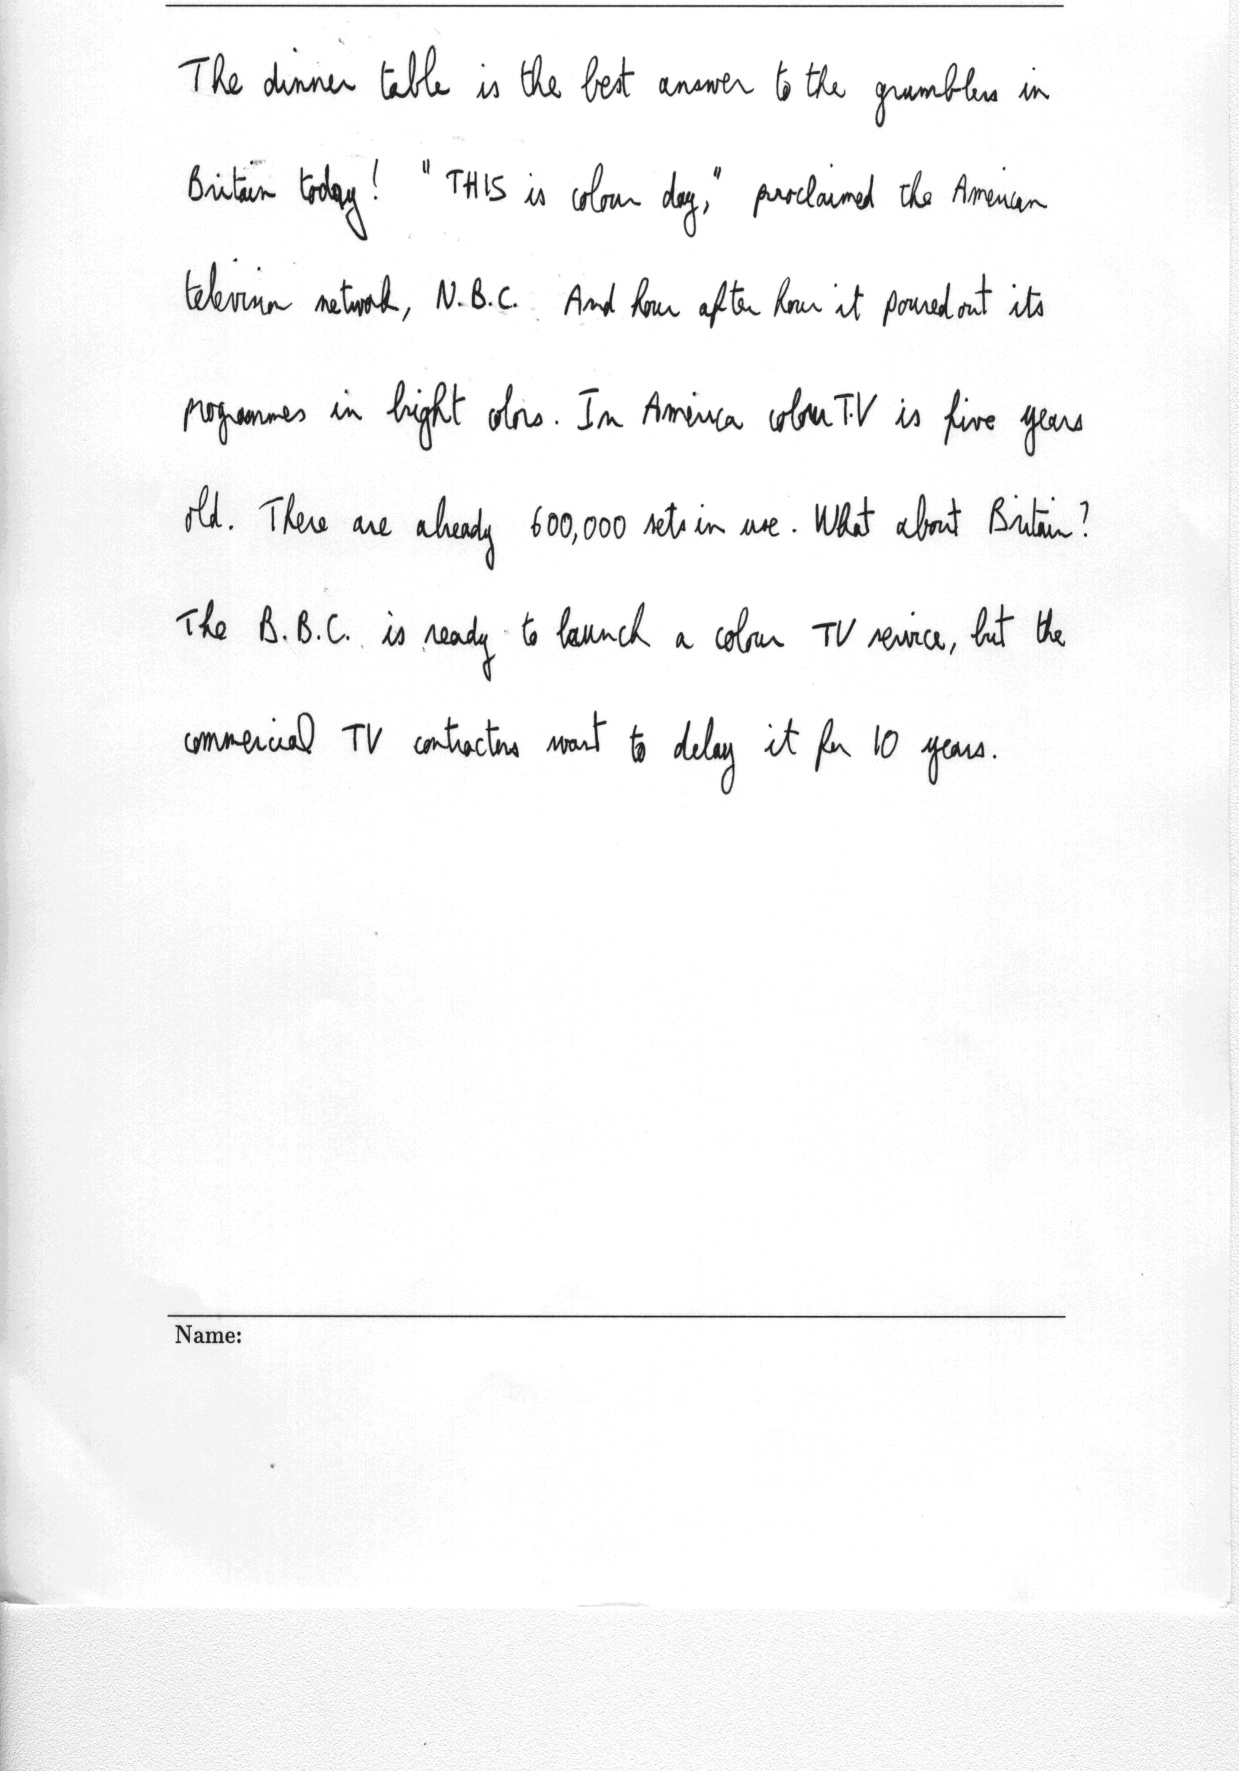 The dinner table is the best answer to the grumblers in
Britain today! "THIS is colour day," proclaimed the American
television network, N.B.C. And hour after hour it poured out its
programmes in bright colors. In America colour T.V is five years
old. There are already 600,000 sets in use. What about Britain?
The B.B.C. is ready to launch a colour TV service, but the
commercial TV contractors want to delay it for 10 years.
Name: